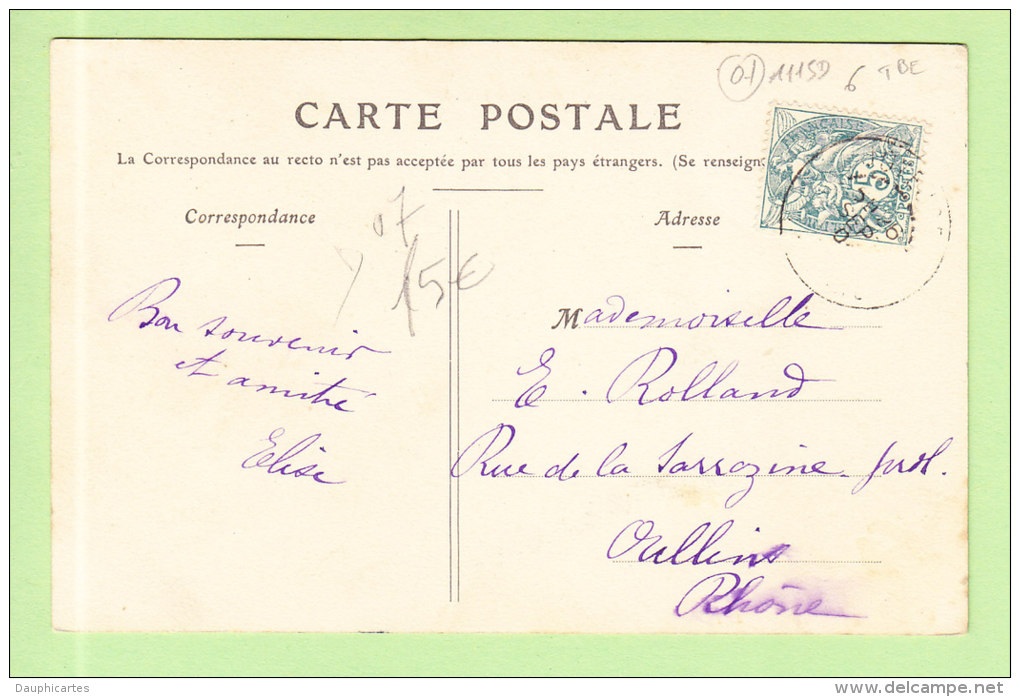 01 111SD 6 TBE
CARTE POSTALE
La Correspondance au recto n'est pas acceptée par tous les pays étrangers. (Se renseign
FRANÇAISE
5
POSTES
Correspondance
Adresse
07
15€
Bon souvenir
et amitié
Elise
Mademoiselle
E. Rolland
Rue de la Sarrazine prol.
Oullins
Rhône
Dauphicartes
http://www.delcampe.net